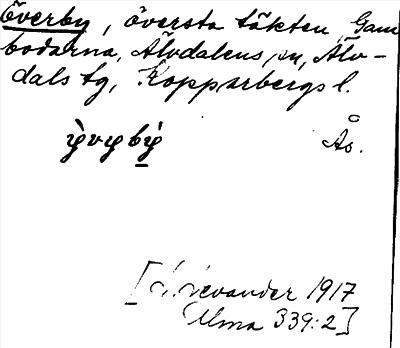 Överby, översta täkten, Gam
bodarna, Älvdalens sn, Älv-
dals tg, Kopparbergs l.
Ås.
[Levander 1917
Ulma 339:2]